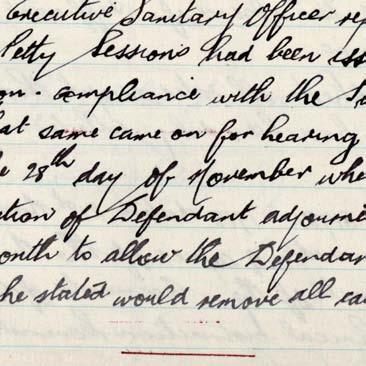 Executive Sanitary Officer rep
Petty Sessions had been iss
on-compliance with the
at same came on for hearing
28th day of November whe
ction of Defendant adjourne
onth to allow the Defendan
he stated would remove all ca